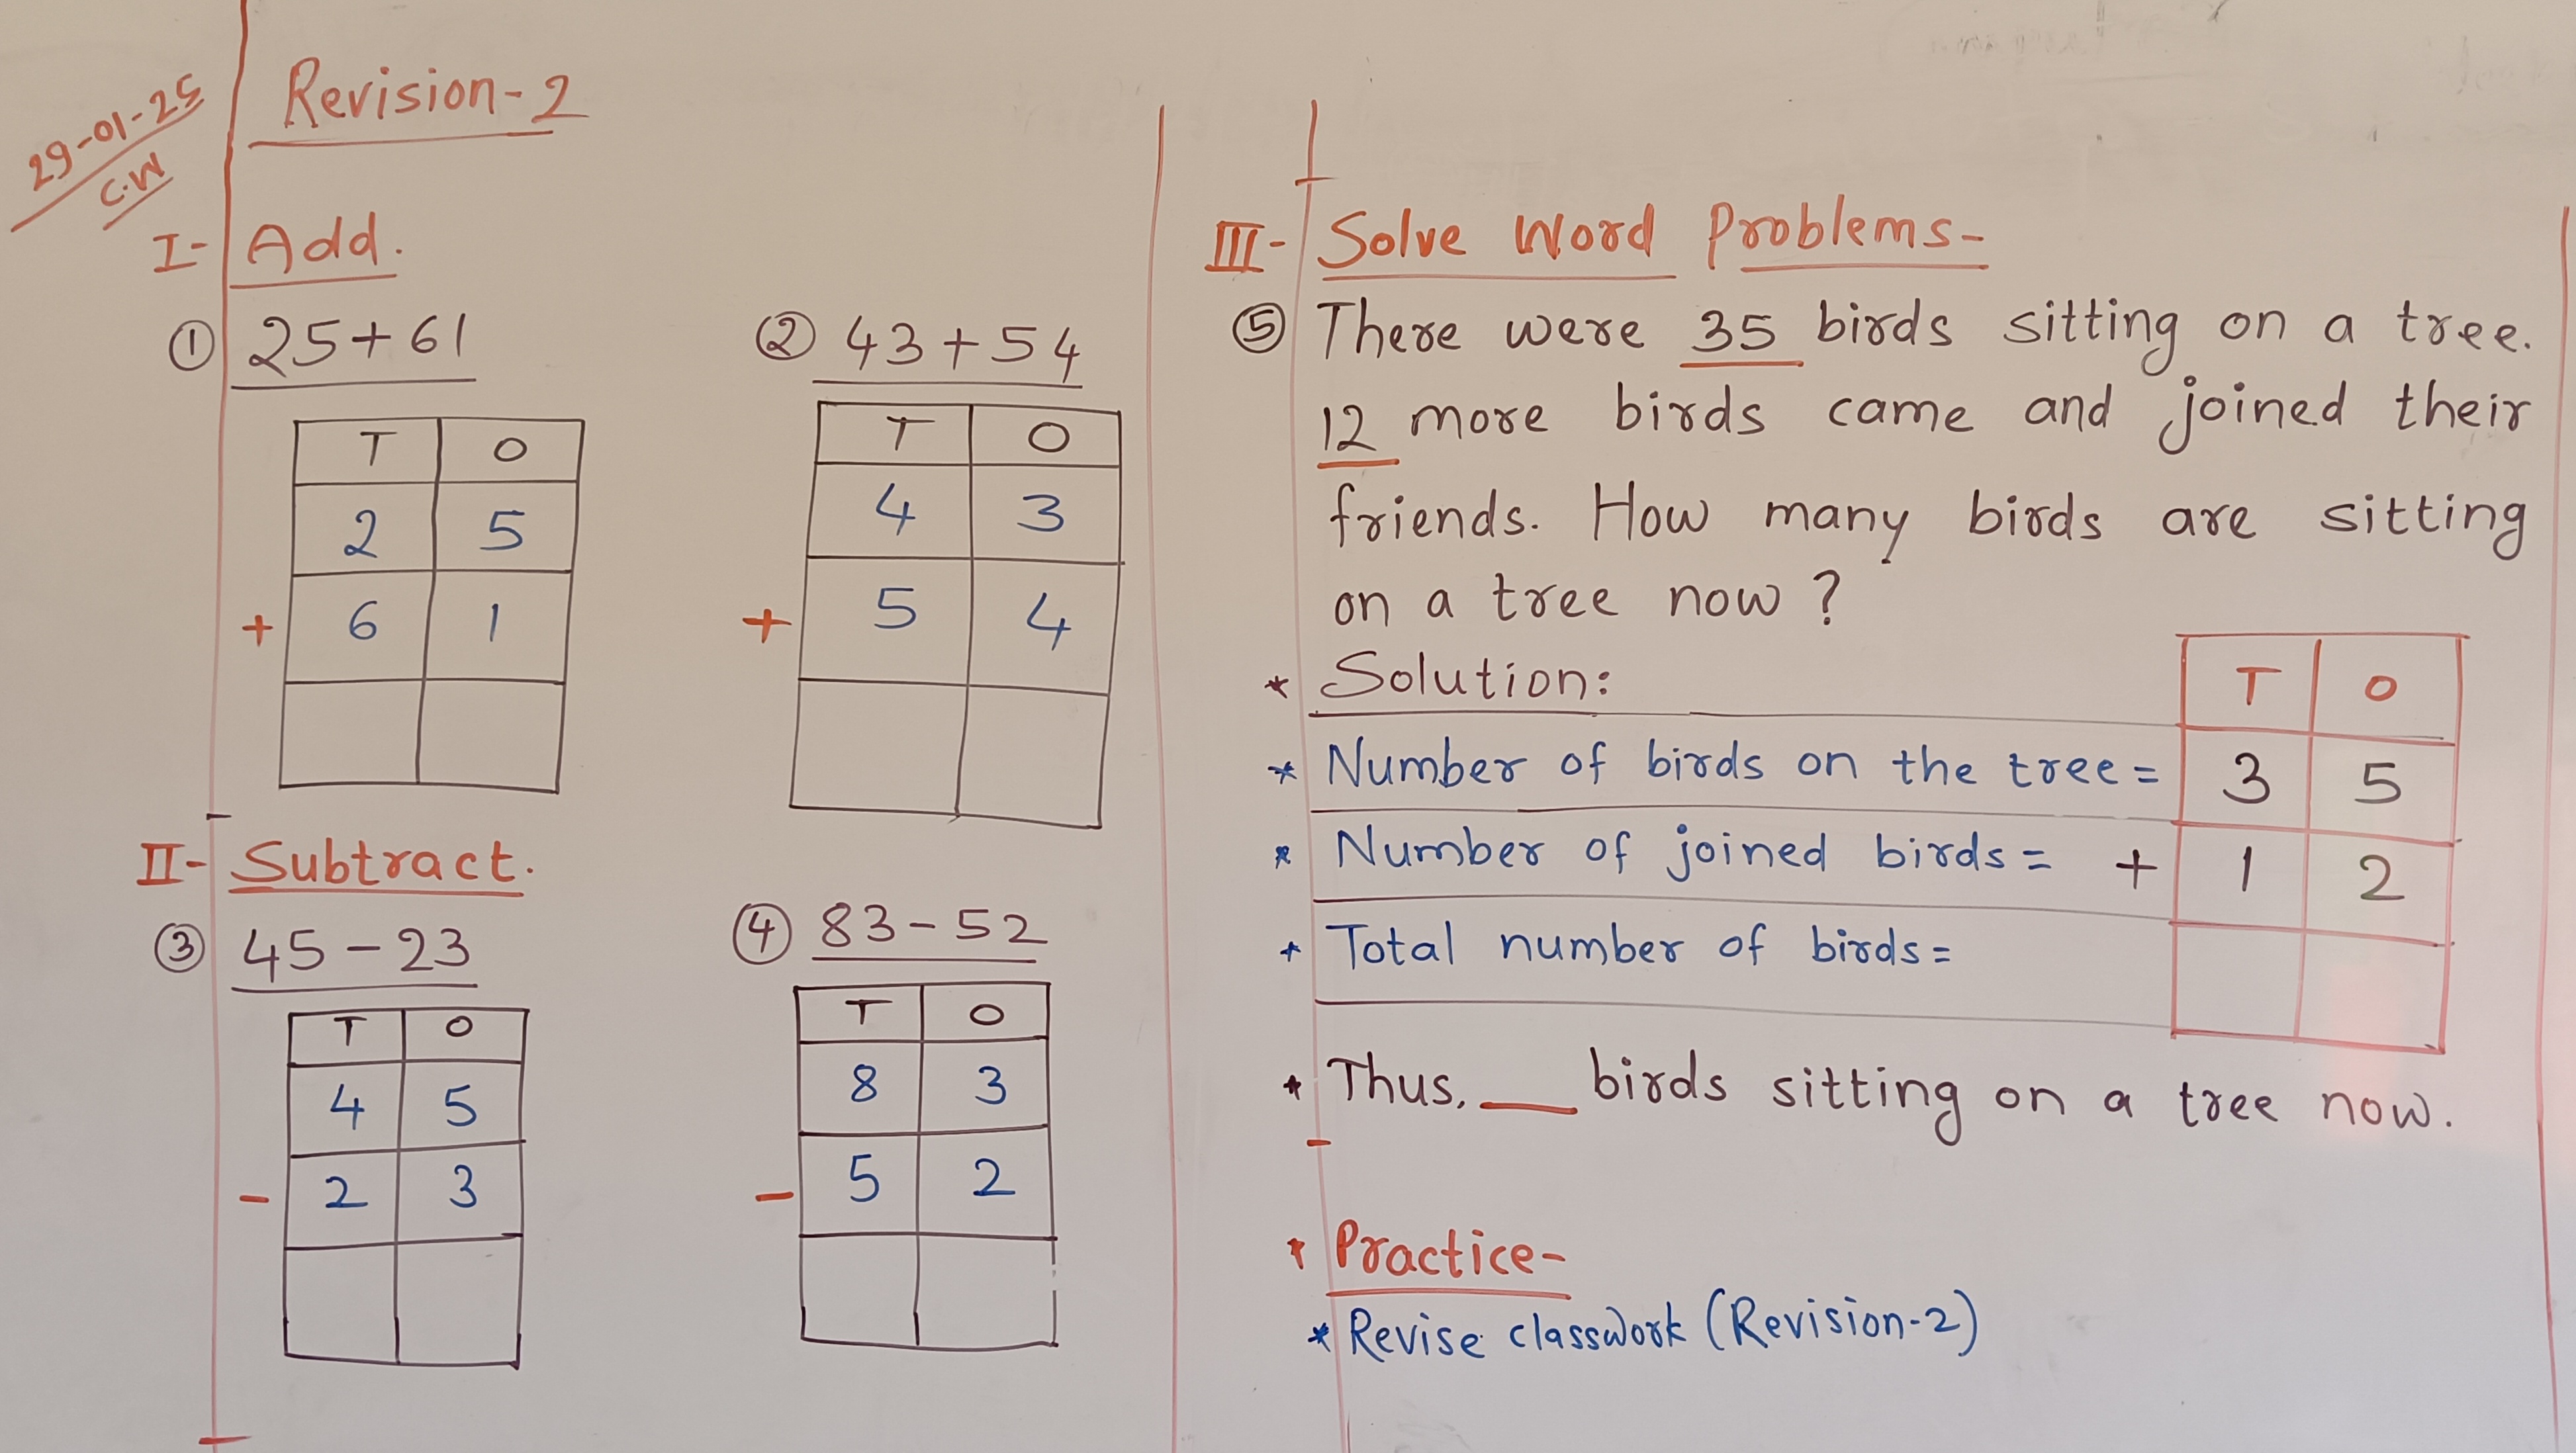 29-01-25
C.W
Revision-2
I- Add.
① 25+61
T O
2 5
+ 6 1
② 43+54
T O
4 3
+ 5 4
II- Subtract.
③ 45-23
T O
4 5
- 2 3
④ 83-52
T O
8 3
- 5 2
III- Solve Word Problems-
⑤ There were 35 birds sitting on a tree.
12 more birds came and joined their
friends. How many birds are sitting
on a tree now?
* Solution:
T O
* Number of birds on the tree = 3 5
* Number of joined birds = + 1 2
* Total number of birds =
* Thus, __ birds sitting on a tree now.
* Practice-
* Revise classwork (Revision-2)